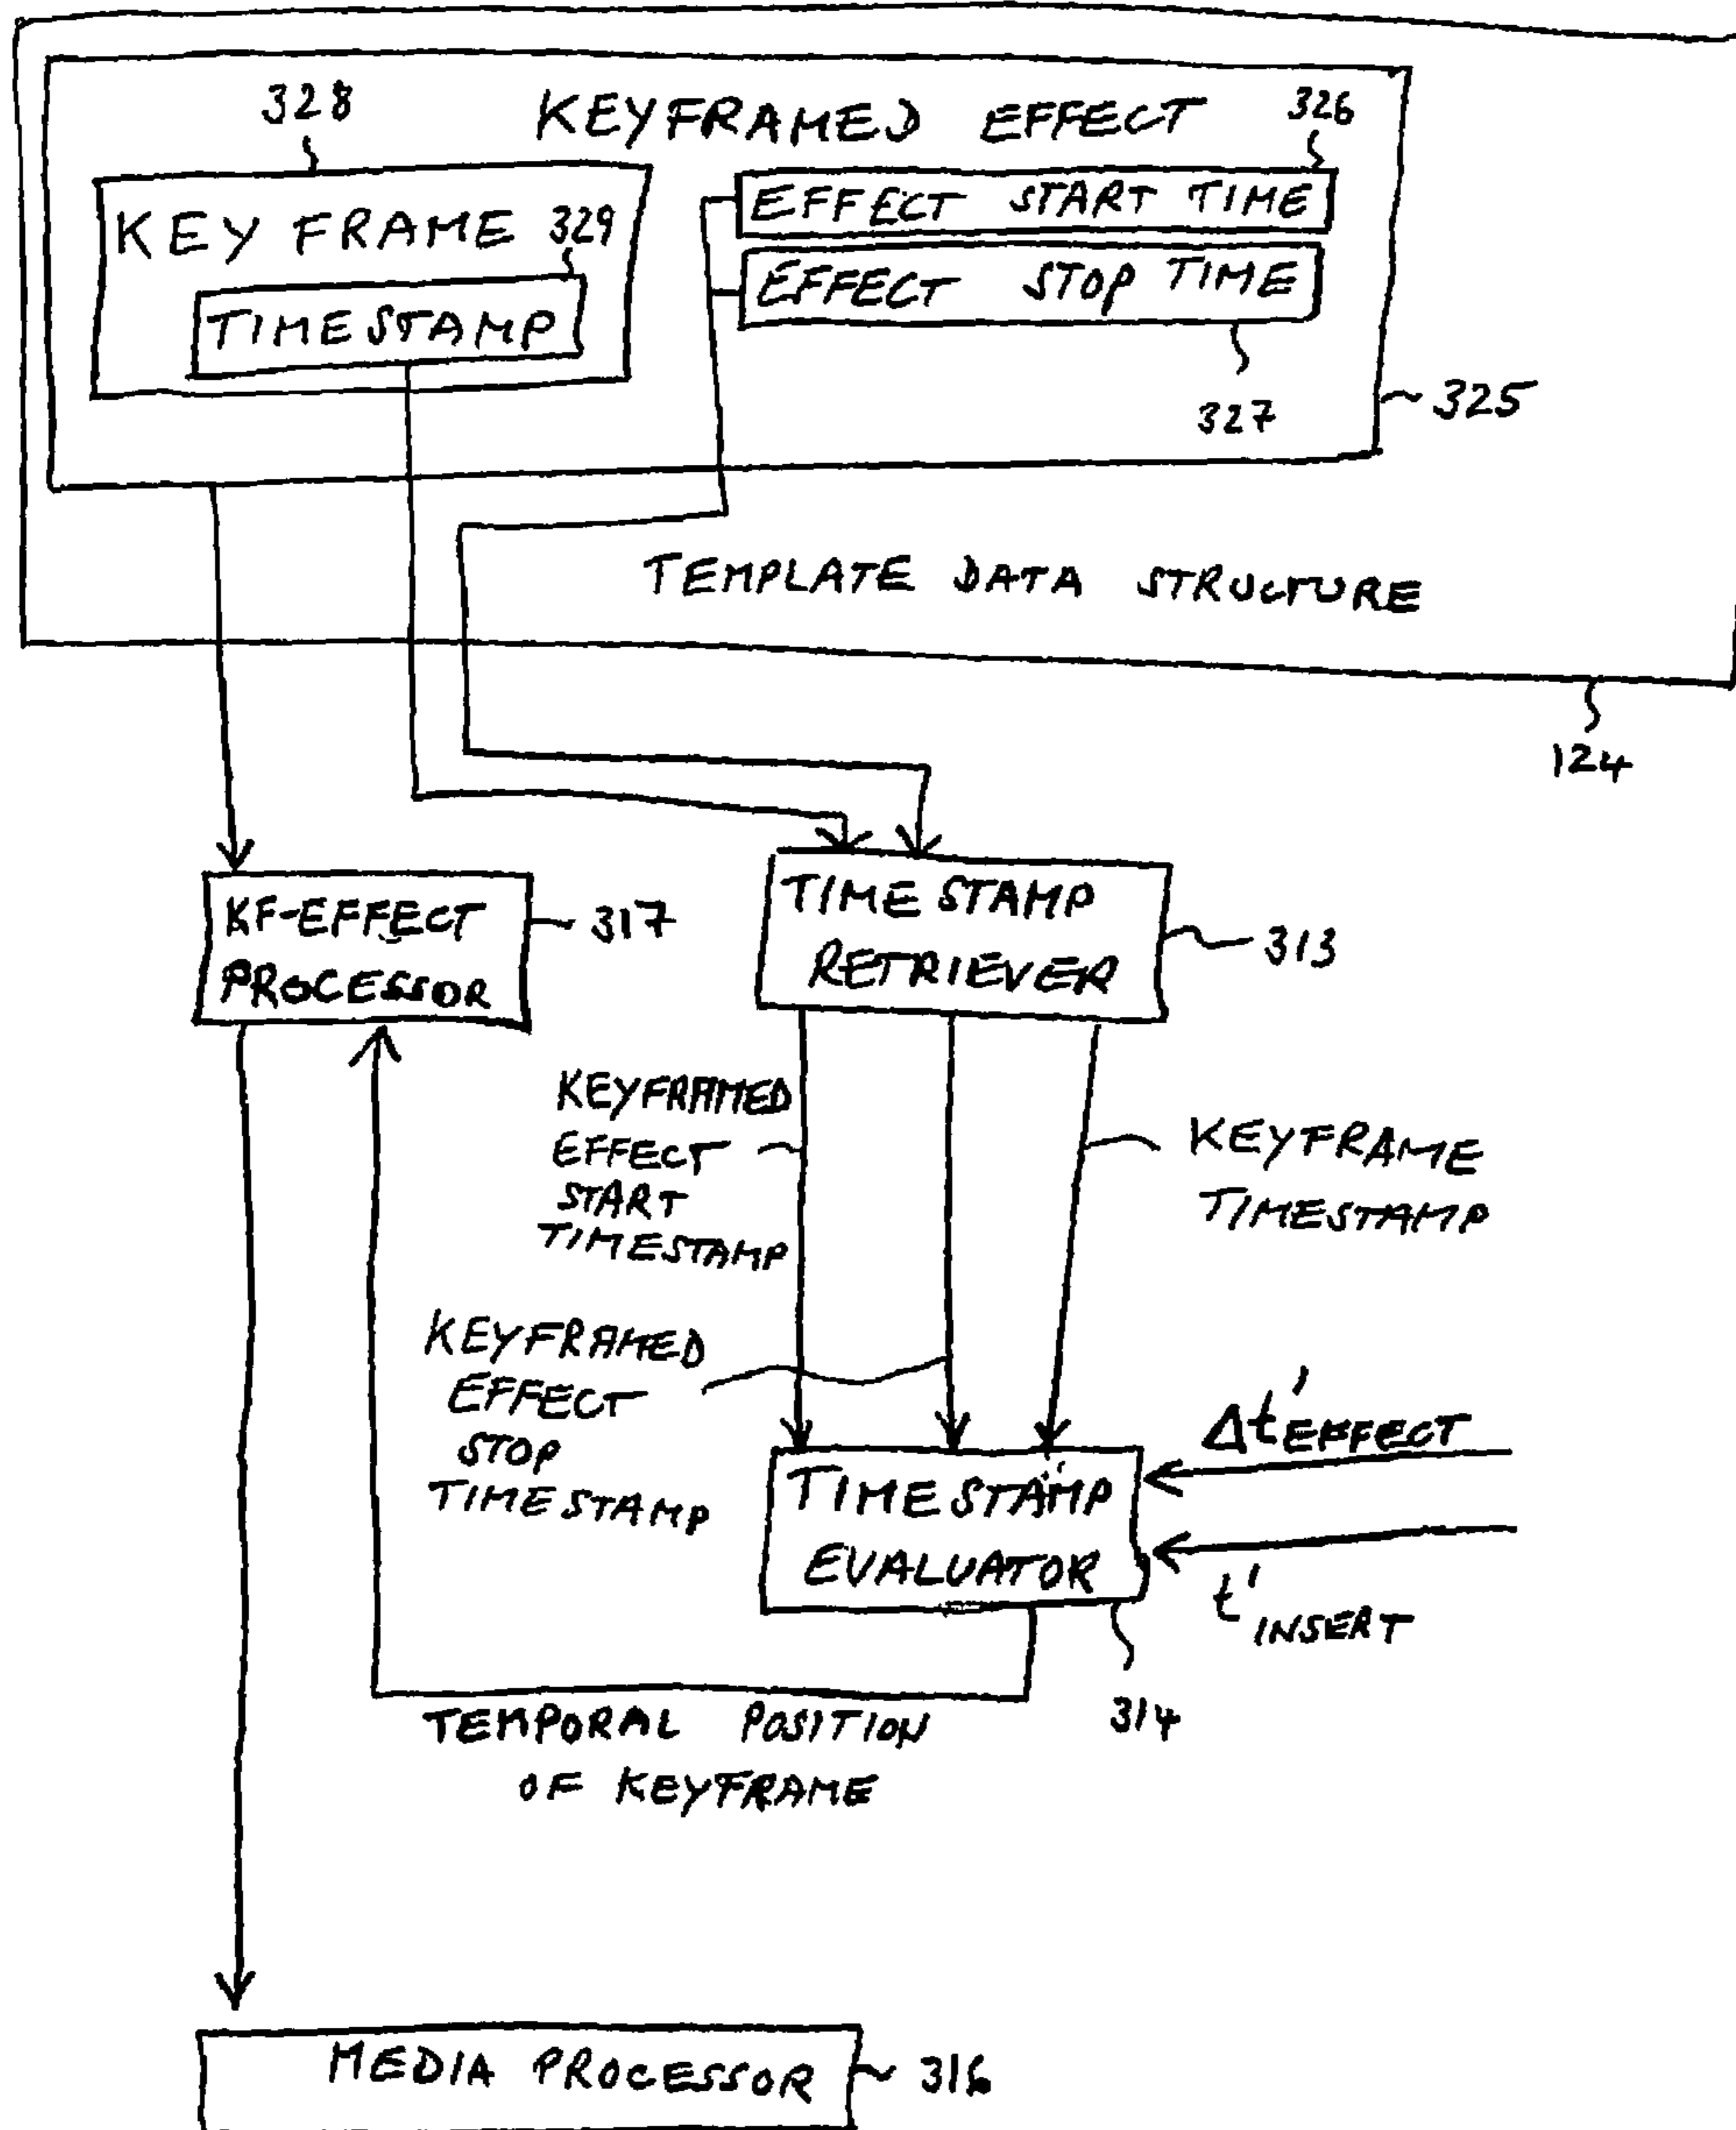 328
KEYFRAMED EFFECT
326
KEY FRAME
329
TIMESTAMP
EFFECT START TIME
EFFECT STOP TIME
327
325
TEMPLATE DATA STRUCTURE
124
KF-EFFECT
PROCESSOR
317
TIMESTAMP
RETRIEVER
313
KEYFRAMED
EFFECT
START
TIMESTAMP
KEYFRAME
TIMESTAMP
KEYFRAMED
EFFECT
STOP
TIMESTAMP
Δt'EFFECT
TIMESTAMP
EVALUATOR
t'INSERT
314
TEMPORAL POSITION
OF KEYFRAME
MEDIA PROCESSOR
316